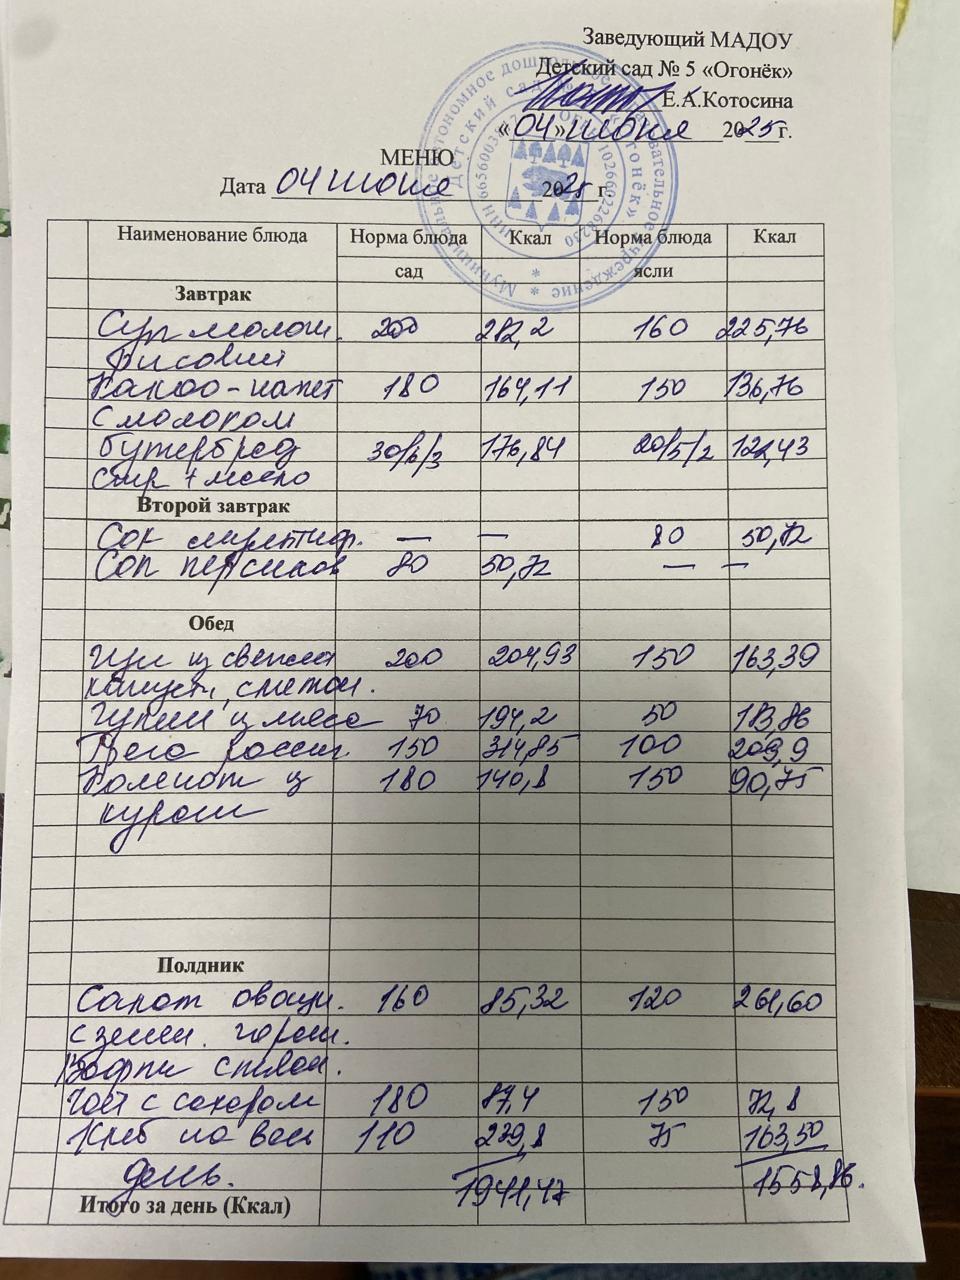 Заведующий МАДОУ
Детский сад № 5 «Огонёк»
Е.А.Котосина
«04» июня 2025 г.
МЕНЮ
Дата 04 июня 2025 г.
Наименование блюда Норма блюда Ккал Норма блюда Ккал
сад ясли
Завтрак
Суп молоч. 200 282,2 160 225,76
рисовый
Какао-напит 180 164,11 150 136,76
с молоком
Бутерброд 30/6/3 176,84 20/5/2 122,43
сыр + масло
Второй завтрак
Сок — — 80 50,72
Сок персиков 80 50,72 — —
Обед
Щи из свежей 200 204,93 150 163,39
капусты, сметан.
Гуляш из мяса 70 194,2 50 183,86
Рага россыпч. 150 314,85 100 209,9
Компот из 180 140,8 150 90,75
кураги
Полдник
Салат овощн. 160 85,32 120 261,60
с зелен. горош.
Вафли
Чай с сахаром 180 87,4 150 72,8
Хлеб на весь 110 239,8 75 163,50
день. 1941,47 1558,86.
Итого за день (Ккал)
Муниципальное автономное дошкольное образовательное учреждение
Детский сад № 5 «Огонёк»